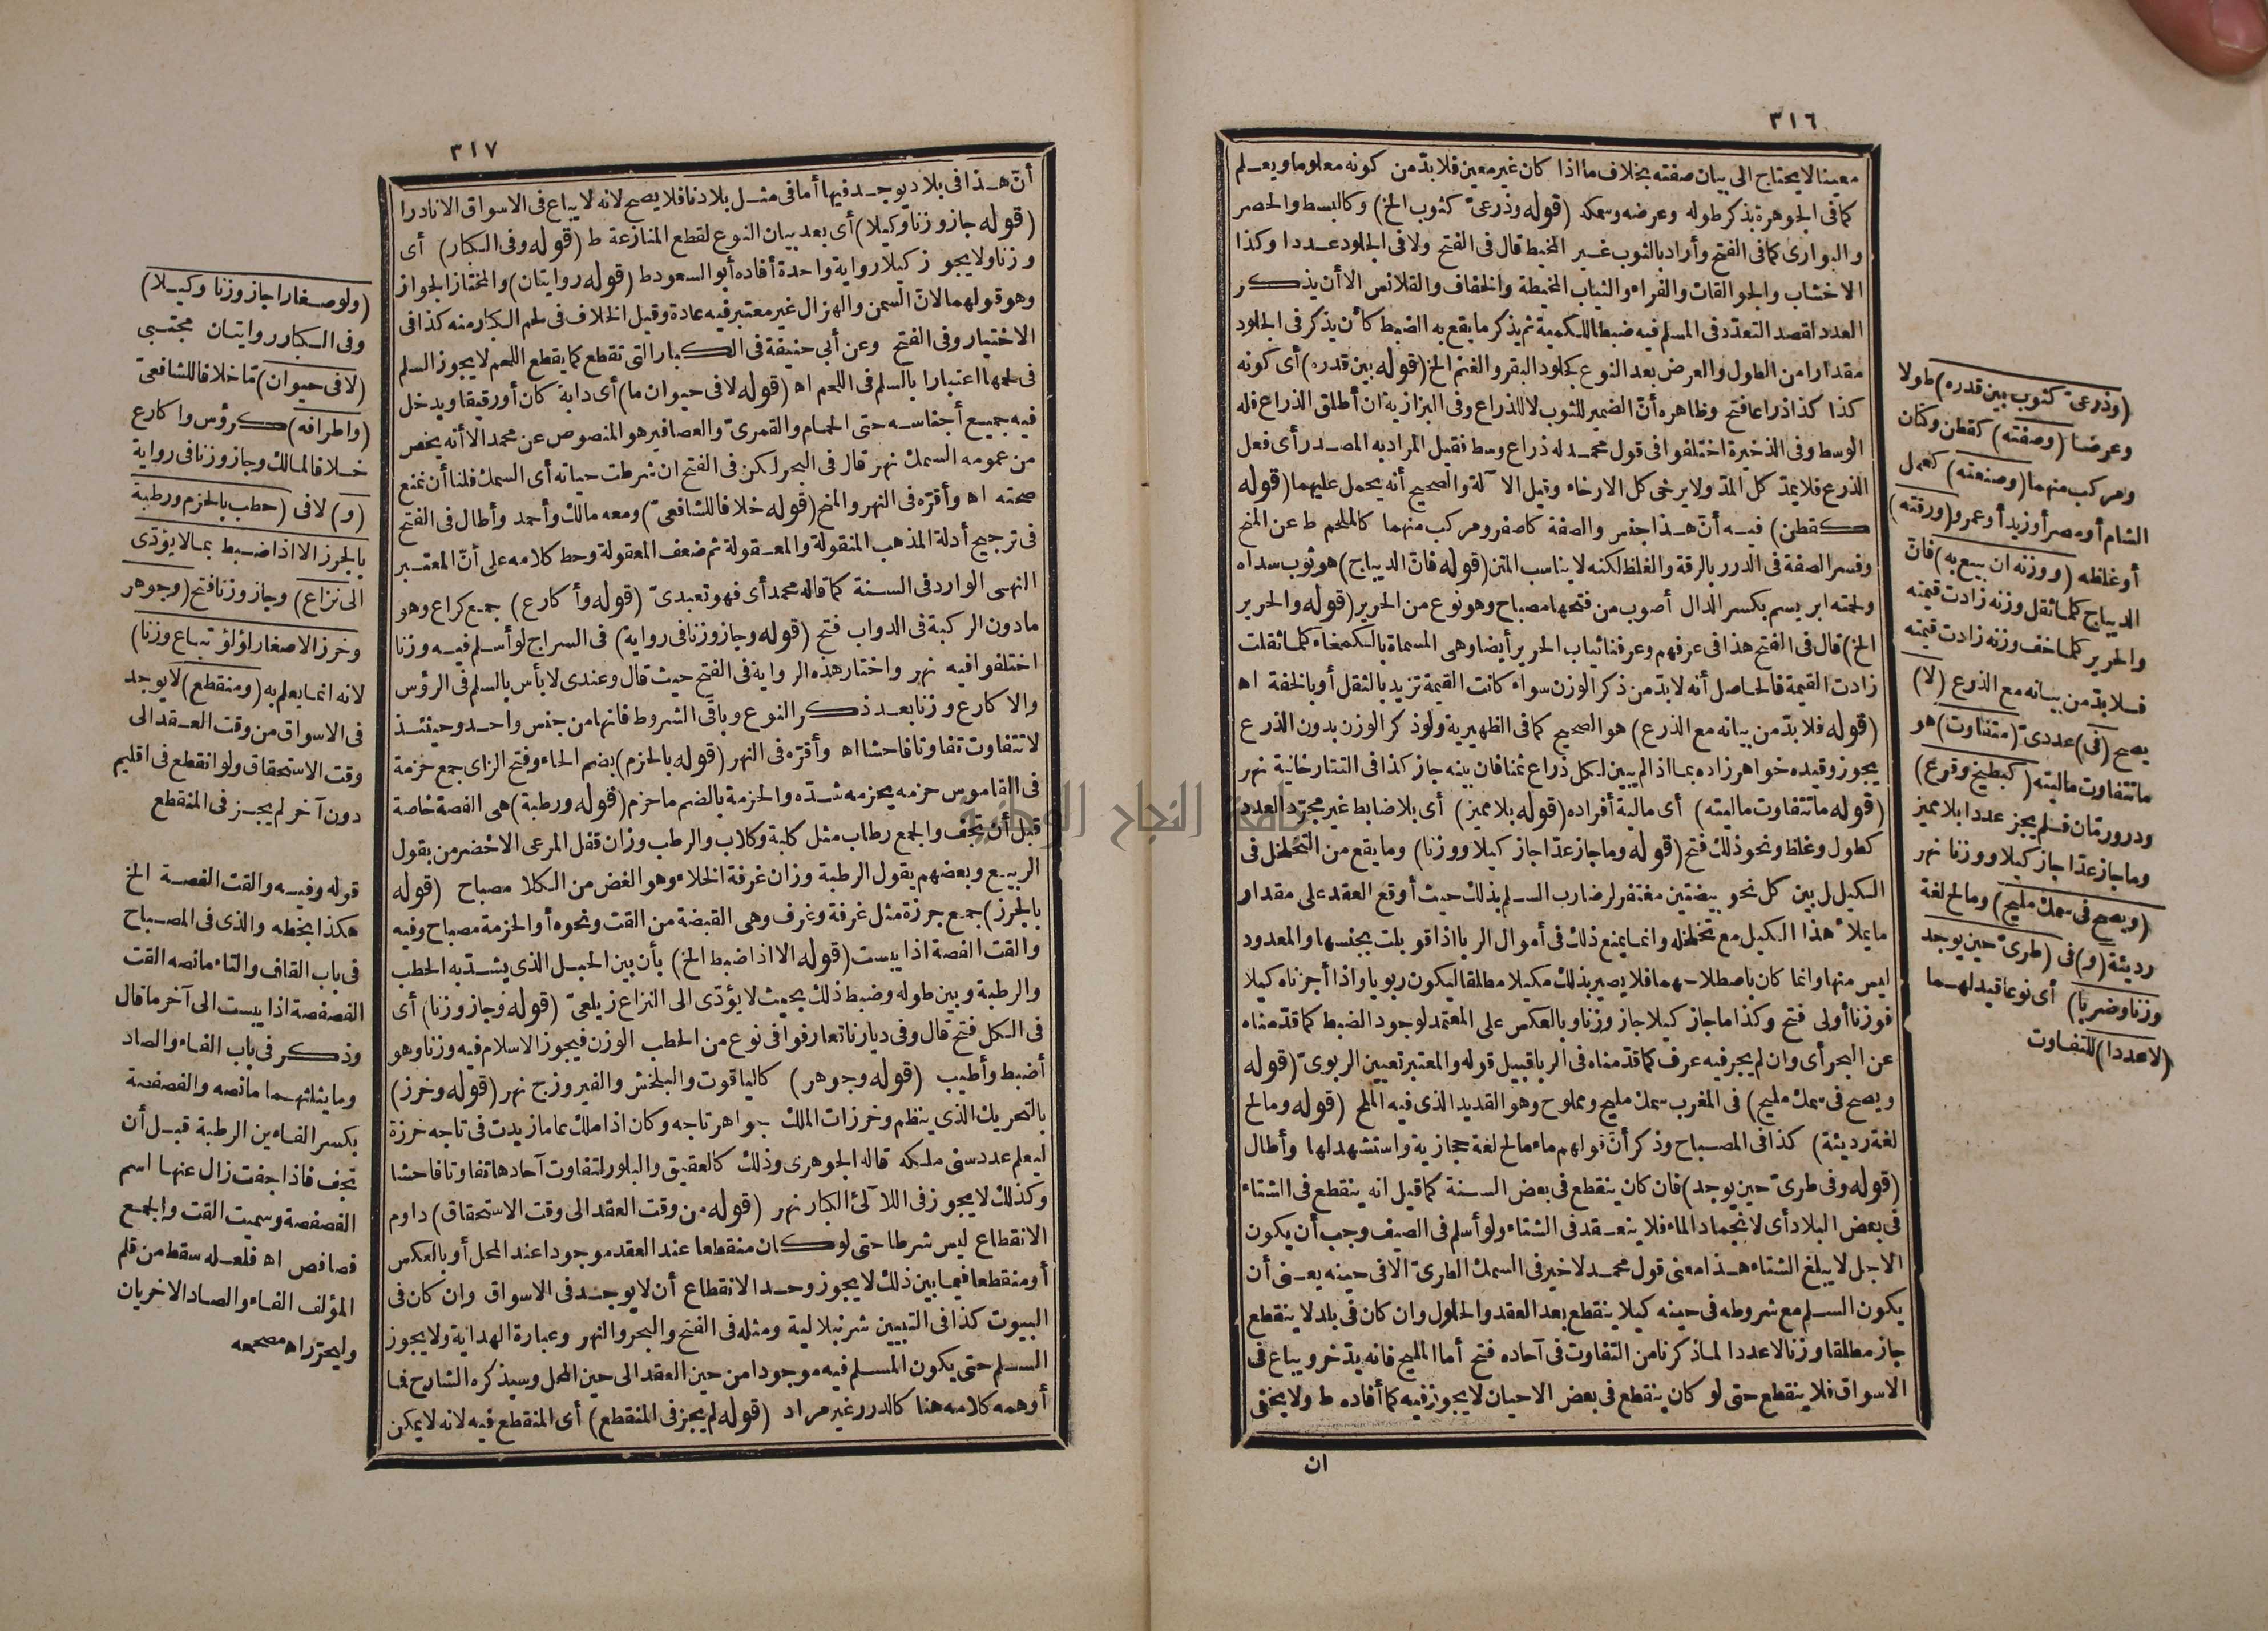 ٣١٦
معينا لا يحتاج الى بيان صفته بخلاف ما اذا كان غير معين فلا بدّ من كونه معلوما ويعلم
كما فى الجوهرة بذكر طوله وعرضه وسمكه (قوله وذرعىّ كثوب الخ) وكالبسط والحصر
والبوارى كما فى الفتح وأراد بالثوب غير المخيط قال فى الفتح ولا فى الجلود عددا وكذا
الاخشاب والجوالقات والفراء والثياب المخيطة والخفاف والقلانس الا أن يذكر
العدد لقصد التعدّد فى المسلم فيه ضبطا للكمية ثم يذكر ما يقع به الضبط كأن يذكر فى الجلود
مقدارا من الطول والعرض بعد النوع كجلود البقر والغنم الخ (قوله بين قدره) أى كونه
كذا كذا ذراعا فتح وظاهره أنّ الضمير للثوب لا للذراع وفى البزازية ان أطلق الذراع فله
الوسط وفى الذخيرة اختلفوا فى قول محمد له ذراع وسط فقيل المراد به المصدر أى فعل
الذرع فلا يمدّ كل المدّ ولا يرخى كل الارخاء وقيل الآلة والصحيح أنه يحمل عليهما (قوله
كقطن) فيه أنّ هذا جنس والصفة كاصفر ومركب منهما كالملحم ط عن المنح
وفسر الصفة فى الدرر بالرقة والغلظ لكنه لا يناسب المتن (قوله فانّ الديباج) هو ثوب سداه
ولحمته ابريسم بكسر الدال أصوب من فتحها مصباح وهو نوع من الحرير (قوله والحرير
الخ) قال فى الفتح هذا فى عرفهم وعرفنا ثياب الحرير أيضا وهى المسماة بالكمخاء كلما ثقلت
زادت القيمة فالحاصل أنه لا بدّ من ذكر الوزن سواء كانت القيمة تزيد بالثقل أو بالخفة اه
(قوله فلا بدّ من بيانه مع الذرع) هو الصحيح كما فى الظهيرية ولو ذكر الوزن بدون الذرع
يجوز وقيده خواهرزاده بما اذا لم يبين لكل ذراع ثمنا فان بينه جاز كذا فى التتارخانية نهر
(قوله ما تتفاوت ماليته) أى مالية أفراده (قوله بلا مميز) أى بلا ضابط غير مجرّد العدد
كطول وغلظ ونحو ذلك فتح (قوله وما جاز عدّا جاز كيلا ووزنا) وما يقع من التخلخل فى
الكيل بين كل نحو بيضتين مغتفر لرضا رب السلم بذلك حيث أوقع العقد على مقدار
ما يملأ هذا الكيل مع تخلخله وانما يمنع ذلك فى أموال الربا اذا قوبلت بجنسها والمعدود
ليس منها وانما كان باصطلاحهما فلا يصير بذلك مكيلا مطلقا ليكون ربويا واذا أجزناه كيلا
فوزنا أولى فتح وكذا ما جاز كيلا جاز وزنا وبالعكس على المعتمد لوجود الضبط كما قدّمناه
عن البحر أى وان لم يجر فيه عرف كما قدّمناه فى الربا قبيل قوله والمعتبر تعيين الربوىّ (قوله
ويصح فى سمك مليح) فى المغرب سمك مليح ومملوح وهو القديد الذى فيه الملح (قوله ومالح
لغة رديئة) كذا فى المصباح وذكر أنّ قولهم ماء مالح لغة حجازية واستشهد لها وأطال
(قوله وفى طرىّ حين يوجد) فان كان ينقطع فى بعض السنة كما قيل انه ينقطع فى الشتاء
فى بعض البلاد أى لانجماد الماء فلا ينعقد فى الشتاء ولو أسلم فى الصيف وجب أن يكون
الاجل لا يبلغ الشتاء هذا معنى قول محمد لا خير فى السمك الطرىّ الا فى حينه يعنى أن
يكون السلم مع شروطه فى حينه كيلا ينقطع بعد العقد والحلول وان كان فى بلد لا ينقطع
جاز مطلقا وزنا لا عددا لما ذكرنا من التفاوت فى آحاده فتح أما المليح فانه يدّخر ويباع فى
الاسواق فلا ينقطع حتى لو كان ينقطع فى بعض الاحيان لا يجوز فيه كما أفاده ط ولا يخفى
ان
(وذرعىّ كثوب بين قدره) طولا
وعرضا (وصفته) كقطن وكتان
ومركب منهما (وصنعته) كعمل
الشام أو مصر أو زيد أو عمرو (ورقته)
أو غلظه (ووزنه ان بيع به) فانّ
الديباج كلما ثقل وزنه زادت قيمته
والحرير كلما خف وزنه زادت قيمته
فلا بدّ من بيانه مع الذرع (لا)
يصح (فى) عددىّ (متفاوت) هو
ما تتفاوت ماليته (كبطيخ وقرع)
ودرّ ورمّان فلم يجز عددا بلا مميز
وما جاز عدّا جاز كيلا ووزنا نهر
(ويصح فى سمك مليح) ومالح لغة
رديئة (و) فى (طرىّ حين يوجد
وزنا وضربا) أى نوعا قيد لهما
(لا عددا) للتفاوت
٣١٧
أنّ هذا فى بلاد يوجد فيها أما فى مثل بلادنا فلا يصح لانه لا يباع فى الاسواق الا نادرا
(قوله جاز وزنا وكيلا) أى بعد بيان النوع لقطع المنازعة ط (قوله وفى الكبار) أى
وزنا ولا يجوز كيلا رواية واحدة أفاده أبو السعود ط (قوله روايتان) والمختار الجواز
وهو قولهما لانّ السمن والهزال غير معتبر فيه عادة وقيل الخلاف فى لحم الكبار منه كذا فى
الاختيار وفى الفتح وعن أبى حنيفة فى الكبار التى تقطع كما يقطع اللحم لا يجوز السلم
فى لحمها اعتبارا بالسلم فى اللحم اه (قوله لا فى حيوان ما) أى دابة كان أو رقيقا ويدخل
فيه جميع أجناسه حتى الحمام والقمرىّ والعصافير هو المنصوص عن محمد الا أنه يخص
من عمومه السمك نهر قال فى البحر لكن فى الفتح ان شرطت حياته أى السمك فلنا أن نمنع
صحته اه وأقرّه فى النهر والمنح (قوله خلافا للشافعىّ) ومعه مالك وأحمد وأطال فى الفتح
فى ترجيح أدلة المذهب المنقولة والمعقولة ثم ضعف المعقولة وحط كلامه على أنّ المعتبر
النهى الوارد فى السنة كما قاله محمد أى فهو تعبدىّ (قوله وأكارع) جمع كراع وهو
ما دون الركبة فى الدواب فتح (قوله وجاز وزنا فى رواية) فى السراج لو أسلم فيه وزنا
اختلفوا فيه نهر واختار هذه الرواية فى الفتح حيث قال وعندى لا بأس بالسلم فى الرؤس
والاكارع وزنا بعد ذكر النوع وباقى الشروط فانها من جنس واحد وحينئذ
لا تتفاوت تفاوتا فاحشا اه وأقرّه فى النهر (قوله بالحزم) بضم الحاء وفتح الزاى جمع حزمة
فى القاموس حزمه يحزمه شدّه والحزمة بالضم ما حزم (قوله ورطبة) هى الفصة خاصة
قبل أن تجف والجمع رطاب مثل كلبة وكلاب والرطب وزان قفل المرعى الاخضر من بقول
الربيع وبعضهم يقول الرطبة وزان غرفة الخلاء وهو الغض من الكلا مصباح (قوله
بالجرز) جمع جرزة مثل غرفة وغرف وهى القبضة من القت ونحوه أو الحزمة مصباح وفيه
والقت الفصة اذا يبست (قوله الا اذا ضبط الخ) بأن بين الحبل الذى يشدّ به الحطب
والرطبة وبين طوله وضبط ذلك بحيث لا يؤدّى الى النزاع زيلعىّ (قوله وجاز وزنا) أى
فى الكل فتح قال وفى ديارنا تعارفوا فى نوع من الحطب الوزن فيجوز الاسلام فيه وزنا وهو
أضبط وأطيب (قوله وجوهر) كالياقوت والبلخش والفيروزج نهر (قوله وخرز)
بالتحريك الذى ينظم وخرزات الملك جواهر تاجه وكان اذا ملك عاما زيدت فى تاجه خرزة
ليعلم عدد سنى ملكه قاله الجوهرى وذلك كالعقيق والبلور لتفاوت آحادها تفاوتا فاحشا
وكذلك لا يجوز فى اللآلئ الكبار نهر (قوله من وقت العقد الى وقت الاستحقاق) دوام
الانقطاع ليس شرطا حتى لو كان منقطعا عند العقد موجودا عند المحل أو بالعكس
أو منقطعا فيما بين ذلك لا يجوز وحد الانقطاع أن لا يوجد فى الاسواق وان كان فى
البيوت كذا فى التبيين شرنبلالية ومثله فى الفتح والبحر والنهر وعبارة الهداية ولا يجوز
السلم حتى يكون المسلم فيه موجودا من حين العقد الى حين المحل وسيذكره الشارح فما
أوهمه كلامه هنا كالدرر غير مراد (قوله لم يجز فى المنقطع) أى المنقطع فيه لانه لا يمكن
(ولو صغارا جاز وزنا وكيلا)
وفى الكبار روايتان مجتبى
(لا فى حيوان) مّا خلافا للشافعىّ
(واطرافه) كرؤس واكارع
خلافا لمالك وجاز وزنا فى رواية
(و) لا فى (حطب بالحزم ورطبة
بالجرز الا اذا ضبط بما لا يؤدّى
الى نزاع) وجاز وزنا فتح (وجوهر
وخرز الا صغار لؤلؤ تباع وزنا)
لانه انما يعلم به (ومنقطع) لا يوجد
فى الاسواق من وقت العقد الى
وقت الاستحقاق ولو انقطع فى اقليم
دون آخر لم يجز فى المنقطع
قوله وفيه والقت الفصة الخ
هكذا بخطه والذى فى المصباح
فى باب القاف والتاء ما نصه القت
الفصفصة اذا يبست الى آخر ما قال
وذكر فى باب الفاء والصاد
وما يثلثهما ما نصه والفصفصة
بكسر الفاءين الرطبة قبل أن
تجف فاذا جفت زال عنها اسم
الفصفصة وسميت القت والجمع
فصافص اه فلعله سقط من قلم
المؤلف الفاء والصاد الاخريان
وليحرّر اه مصححه
جامعة النجاح الوطنية